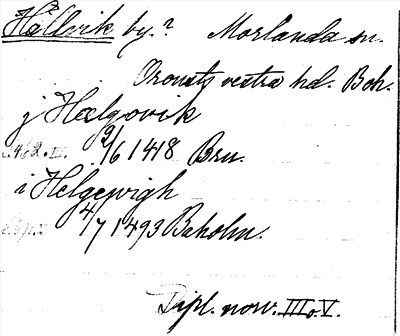 Hällvik by.? Morlanda sn.
Orousts vestra hd. Boh.
j Hælgovik
9/6 1418 Bru.
i Helgewigh
4/7 1493 Baholm.
Dipl. norv. III o. V.